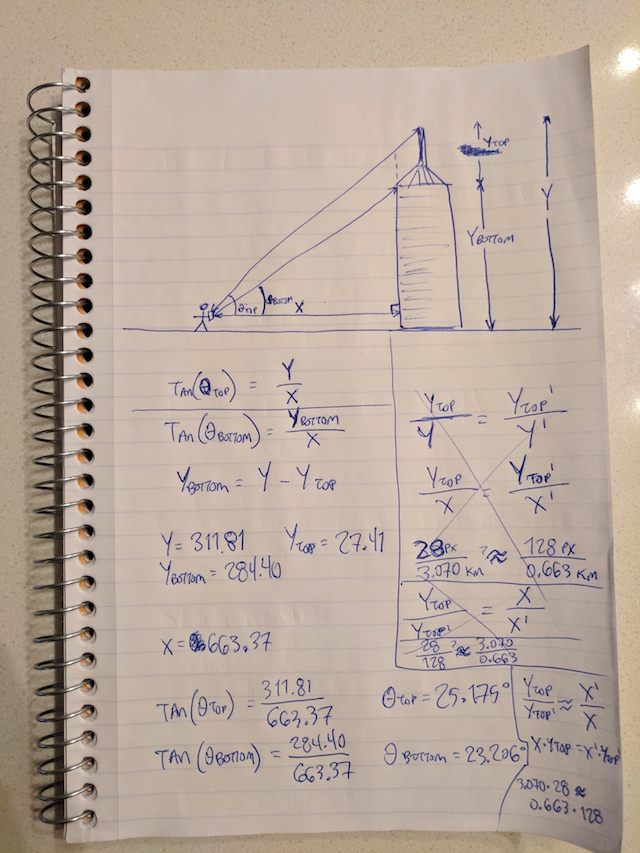 Y TOP
Y
Y BOTTOM
θ TOP
θ BOTTOM
X
TAN(θ TOP) = Y/X
TAN(θ BOTTOM) = Y BOTTOM/X
Y BOTTOM = Y - Y TOP
Y = 311.81 Y TOP = 27.41
Y BOTTOM = 284.40
X = 663.37
TAN(θ TOP) = 311.81/663.37 θ TOP = 25.175°
TAN(θ BOTTOM) = 284.40/663.37 θ BOTTOM = 23.206°
Y TOP/Y = Y TOP'/Y'
Y TOP/X = Y TOP'/X'
28 PX/3.070 KM ?≈ 128 PX/0.663 KM
Y TOP/Y TOP' = X/X'
28/128 ?≈ 3.070/0.663
Y TOP/Y TOP' ≈ X'/X
X·Y TOP = X'·Y TOP'
3.070·28 ≈
0.663·128